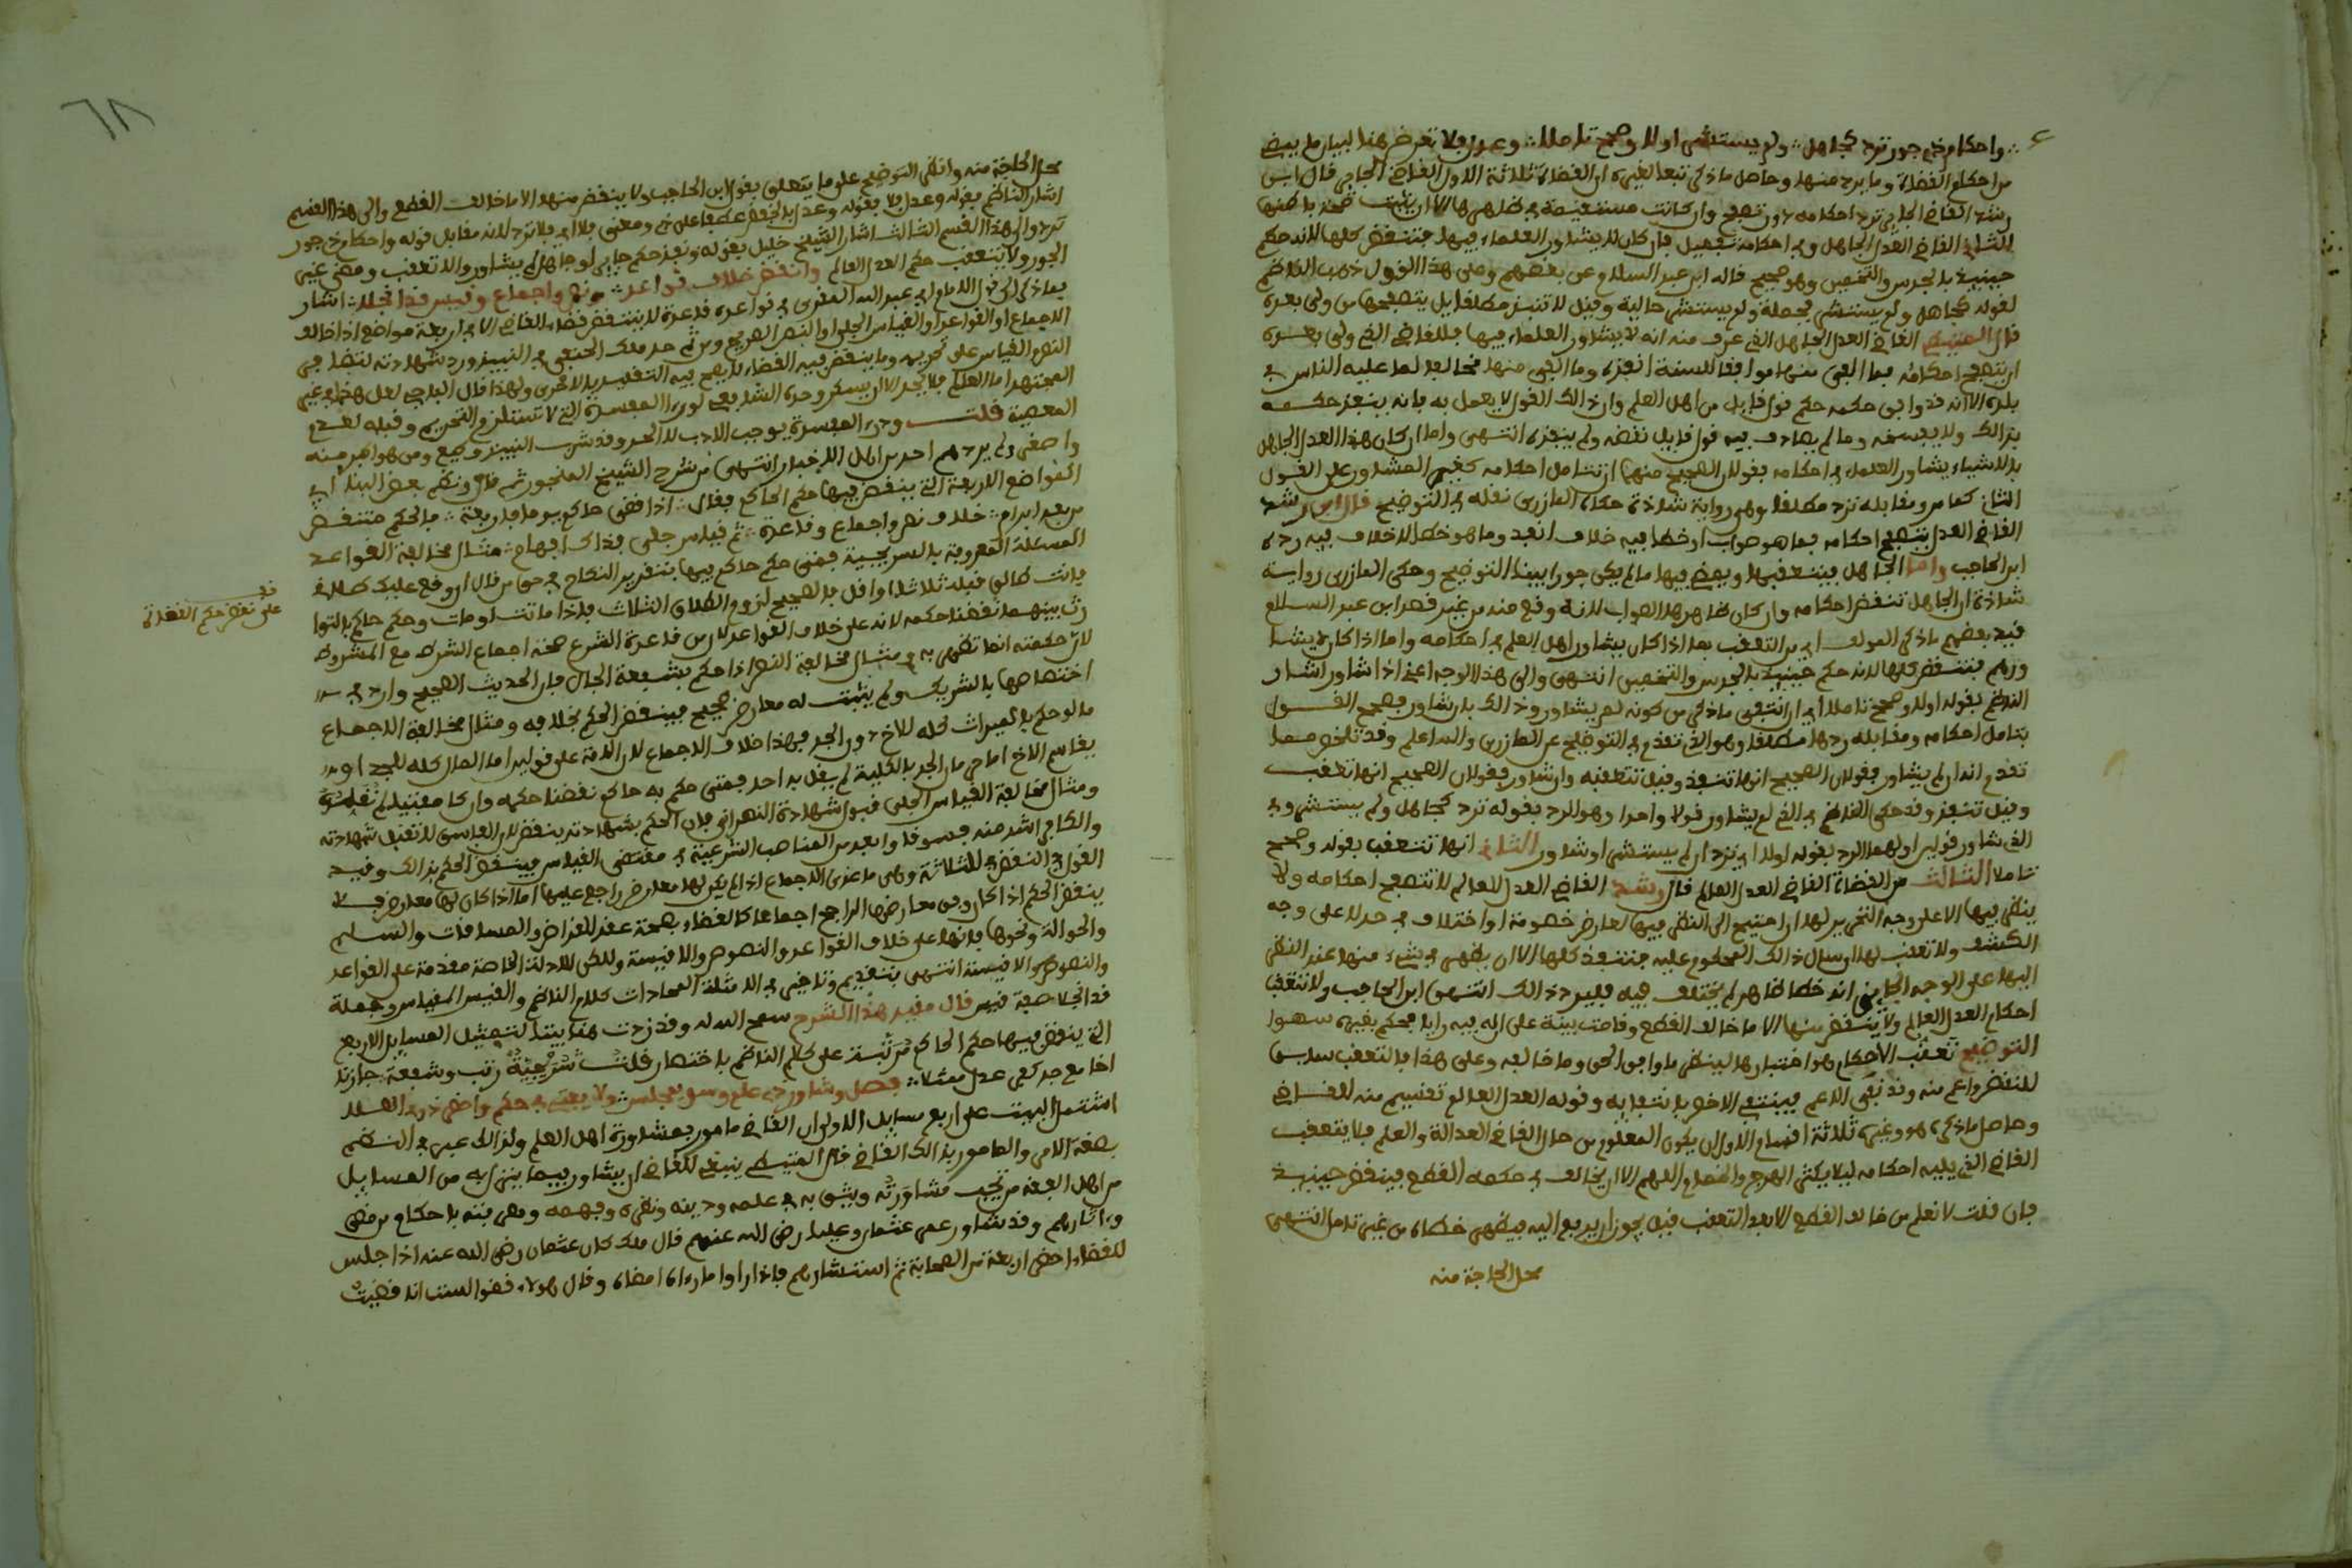 واحكام ذي جور ترد كجاهل ولم يستشر اولا وصحح تاملا وعدل فلا تعرض هنا لبيان ما يمضى
من احكام القضاة وما يرد منها وحاصل ما ذكر تبعا لغيره ان القضاة ثلاثة الاول القاضي الجاير قال ابن
رشد القاضي الجاير ترد احكامه دون تصفح وان كانت مستقيمة في ظاهرها الا ان يثبت صحة باطنها
الثاني القاضي العدل الجاهل وفي احكامه تفصيل فان كان لا يشاور العلماء فيها فتنقض كلها لانه حكم
حينيذ بالحدس والتخمين وهو صحيح قاله ابن عبد السلام عن بعضهم وعلى هذا القول ذهب الناظم
لقوله كجاهل ولم يستشر فجملة ولم يستشر حالية وقيل لا تنبذ مطلقا بل يتصفحها من ولي بعده
قال المتيطي القاضي العدل الجاهل الذي عرف منه انه لا يشاور العلماء فيها فللقاضي الذي ولي بعده
ان يتصفح احكامه فما الفى منها موافقا للسنة انفذه وما الفى منها مخالفا لما عليه الناس في
بلده الا انه قد وافق حكمه حكم قول قايل من اهل العلم وان ذالك القول لا يعمل به فانه ينفذ حكمه
بذالك ولا يفسخه وما لم يصادف فيه قول قايل نقضه ولم ينفذه انتهى واما ان كان هذا العدل الجاهل
بالاشياء يشاور العلماء في احكامه فقولان الصحيح منهما ان تتامل احكامه كغير المشاور على القول
الثاني كما مر ومقابله ترد مطلقا وهي رواية شاذة حكاه المازري نقله في التوضيح قال ابن رشد
القاضي العدل يتصفح احكامه فما هو صواب او خطا فيه خلاف انفذ وما هو خطا لا خلاف فيه رده
ابن الحاجب واما الجاهل فيتعقبها ويمضي فيها ما لم يكن جورا بينا التوضيح وحكى المازري رواية
شاذة ان الجاهل تنقض احكامه وان كان ظاهرها الصواب لانه وقع منه من غير قصد ابن عبد السلام
قيد بعضهم ما ذكر المولف اي من التعقب بما اذا كان يشاور اهل العلم في احكامه واما اذا كان لا يشا
ورهم فتنقض كلها لانه حكم حينيذ بالحدس والتخمين انتهى والى هذا الوجه اعني اذا شاور اشار
الناظم بقوله اولا وصحح تاملا اي ان انتفى ما ذكر من كونه لم يشاور وذالك بان شاور فصحح القول
بتامل احكامه ومقابله ردها مطلقا وهو الذي تقدم في التوضيح عن المازري والله اعلم وقد تلخص مما
تقدم انه ان لم يشاور فقولان الصحيح انها تنبذ وقيل تتعقبه وان شاور فقولان الصحيح انها تتعقب
وقيل تنبذ وقد حكى الناظم في الذي لم يشاور قولا واحدا وهو الرد بقوله ترد كجاهل ولم يستشر وفي
الذي شاور قولين اولهما الرد بقوله اولا اي ترد ان لم يستشر او شاور الثاني انها تتعقب بقوله وصحح
تاملا الثالث من القضاة القاضي العدل العالم قال ابن رشد القاضي العدل العالم لا تتصفح احكامه ولا
ينظر فيها الا على وجه التجريز لها ان احتيج الى النظر فيها لعارض خصومة او اختلاف في حد لا على وجه
الكشف ولا تعقب لها ان سال ذالك المحكوم عليه فتنفذ كلها الا ان يظهر في شيء منها عند النظر
اليها على الوجه الجايز انه خطا ظاهر لم يختلف فيه فيرد ذالك انتهى ابن الحاجب ولا تتعقب
احكام العدل العالم ولا ينقض منها الا ما خالف القطع وقامت بينة على انه فيه رايا فحكم بغيره سهوا
التوضيح تعقب الاحكام هو اختبارها لينظر ما وافق الحق وما خالفه وعلى هذا فالتعقب سابق
للنقض واعم منه وقد نفى الاعم فينتفي الاخص بانتفايه وقوله العدل العالم تقسيم منه للقاضي
وحاصل ما ذكره هو وغيره ثلاثة اقسام الاول ان يكون المعلوم من حال القاضي العدالة والعلم فلا يتعقب
القاضي الذي يليه احكامه ليلا يكثر الهرج والخصام اللهم الا ان يخالف في حكمه القطع فينقض حينيذ
فان قلت لا نعلم من خالف القطع الا بعد التعقب قيل يجوز ان يرفع اليه فيظهر خطاه من غير تامل انتهى
محل الحاجة منه
٦٨
محل الحاجة منه وانظر التوضيح على ما يتعلق بقول ابن الحاجب ولا ينقض منها الا ما خالف القطع والى هذا القسم
اشار الناظم بقوله وعدل فلا بقوله وعدل بالخفض عطفا على ذي ومعنى فلا اي فلا ترد لانه مقابل قوله واحكام ذي جور
ترد والى هذا القسم الثالث اشار الشيخ خليل بقوله ونبذ حكم جاير او جاهل لم يشاور والا تعقب ومضى غير
الجور ولا يتعقب حكم العدل العالم وانقض خلاف قواعد ونص واجماع وقيس قد انجلا اشار
بما ذكر الى قول الامام ابي عبد الله المقري في قواعده قاعدة لا ينتقض قضاء القاضي الا في اربعة مواضع اذا خالف
الاجماع او القواعد او القياس الجلي او النص الصريح ومن ثم حد ملك الحنفي في النبيذ ورد شهادته لتضافر
النص القياس على تحريمه وما ينقض فيه القضاء لا يصح فيه التقليد بالاحرى ولهذا قال الباجي لعل هذا في غير
المجتهد اما العالم فلا يحد الا ان يسكر وحده الشافعي لدرء المفسدة التي لا تستلزم التحريم وقبله لعدم
المعصية قلت ودرء المفسدة يوجب الادب لا الحد وقد شرب النبيذ وكيع ومن هو اكبر منه
واصغر ولم يردهم احد من اهل الاخبار انتهى من شرح الشيخ المنجور ثم قال ونظم بعض البنداني
المواضع الاربعة التي ينقض فيها حكم الحاكم فقال اذا قضى حاكم يوما باربعة فالحكم منتقض
من بعد ابرام خلاف نص واجماع وقاعدة ثم قياس جلي بذاك ابهام مثال مخالفة القواعد
المسئلة المعروفة بالسريجية فمتى حكم حاكم فيها بتقرير النكاح في حق من قال ان وقع عليك طلاقي
فانت طالق قبله ثلاثا او اقل فالصحيح لزوم الطلاق الثلاث فاذا ماتت او مات وحكم حاكم بالتوا
رث بينهما نقضنا حكمه لانه على خلاف القواعد لان من قاعدة الشرع صحة اجماع الشرط مع المشروط
لان حكمته انما تظهر به ومثال مخالفة النص اذا حكم بشفعة الجار فان الحديث الصحيح وارد في
اختصاصها بالشريك ولم يثبت له معارض صحيح فينقض الحكم بخلافه ومثال مخالفة الاجماع
ما لو حكم بالميراث كله للاخ دون الجد فهذا خلاف الاجماع لان الامة على قولين اما المال كله للجد او
يقاسم الاخ اما حرمان الجد بالكلية لم يقل به احد فمتى حكم به حاكم نقضنا حكمه وان كان مفتيا لم نقلده
ومثال مخالفة القياس الجلي قبول شهادة النصراني فان الحكم بشهادته ينقض لان الفاسق لا تقبل شهادته
والكافر اشد منه فسوقا وابعد من المناصب الشرعية في مقتضى القياس فينتقض الحكم بذالك وقيد
القرافي النقض في الثلاثة وهي ما عدى الاجماع اذا لم يكن لها معارض راجح عليها اما اذا كان لها معارض فلا
ينقض الحكم اذا كان وفق معارضها الراجح اجماعا كالقضاء بصحة عقد القراض والمساقات والسلم
والحوالة ونحوها فانها على خلاف القواعد والنصوص والاقيسة ولكن للادلة الخاصة مقدمة على القواعد
والنصوص والاقيسة انتهى بتقديم وتاخير في الامثلة لمحاذات كلام الناظم والقيس القياس وجملة
قد انجلا صفة قيس قال مقيد هذا الشرح سمح الله له وقد زدت هنا بيتا لتمثيل المسايل الاربع
التي ينقض فيها حكم الحاكم مرتبة على كلام الناظم باختصار فقلت سُرَيْجِيَّةٌ رتب وشفعة جارنا
اخا مع جد كفر عدل مثلا فصل وشاور ذي علم وسو بمجلس ولا يفتي في حكم وافض ذرء العلا
اشتمل البيت على اربع مسايل الاولى ان القاضي مامور بمشاورة اهل العلم ولذالك عبر في النظم
بصفة الامر والمامور بذالك القاضي قال المتيطي ينبغي للقاضي ان يشاور فيما ينزل به من المسايل
من اهل الفقه من تجب مشاورته ويثق به في علمه ودينه ونظره وفهمه ومعرفته باحكام من مضى
وءاثارهم وقد شاور عمر عثمان وعليا رضي الله عنهم قال ملك كان عثمان رضي الله عنه اذا جلس
للقضاء احضر اربعة من الصحابة ثم استشارهم فاذا راوا ما رءاه امضاه وقال هولاء قضوا لست انا قضيت
قف
على نقض حكم القضاة